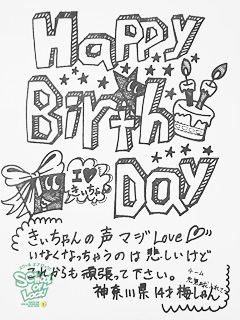 Happy
Birth
Day
I ♡
きぃちゃん
きぃちゃんの声 マジ Love♡
いなくなっちゃうのは 悲しいけど
これからも 頑張って下さい。
神奈川県 14才 梅しゃん